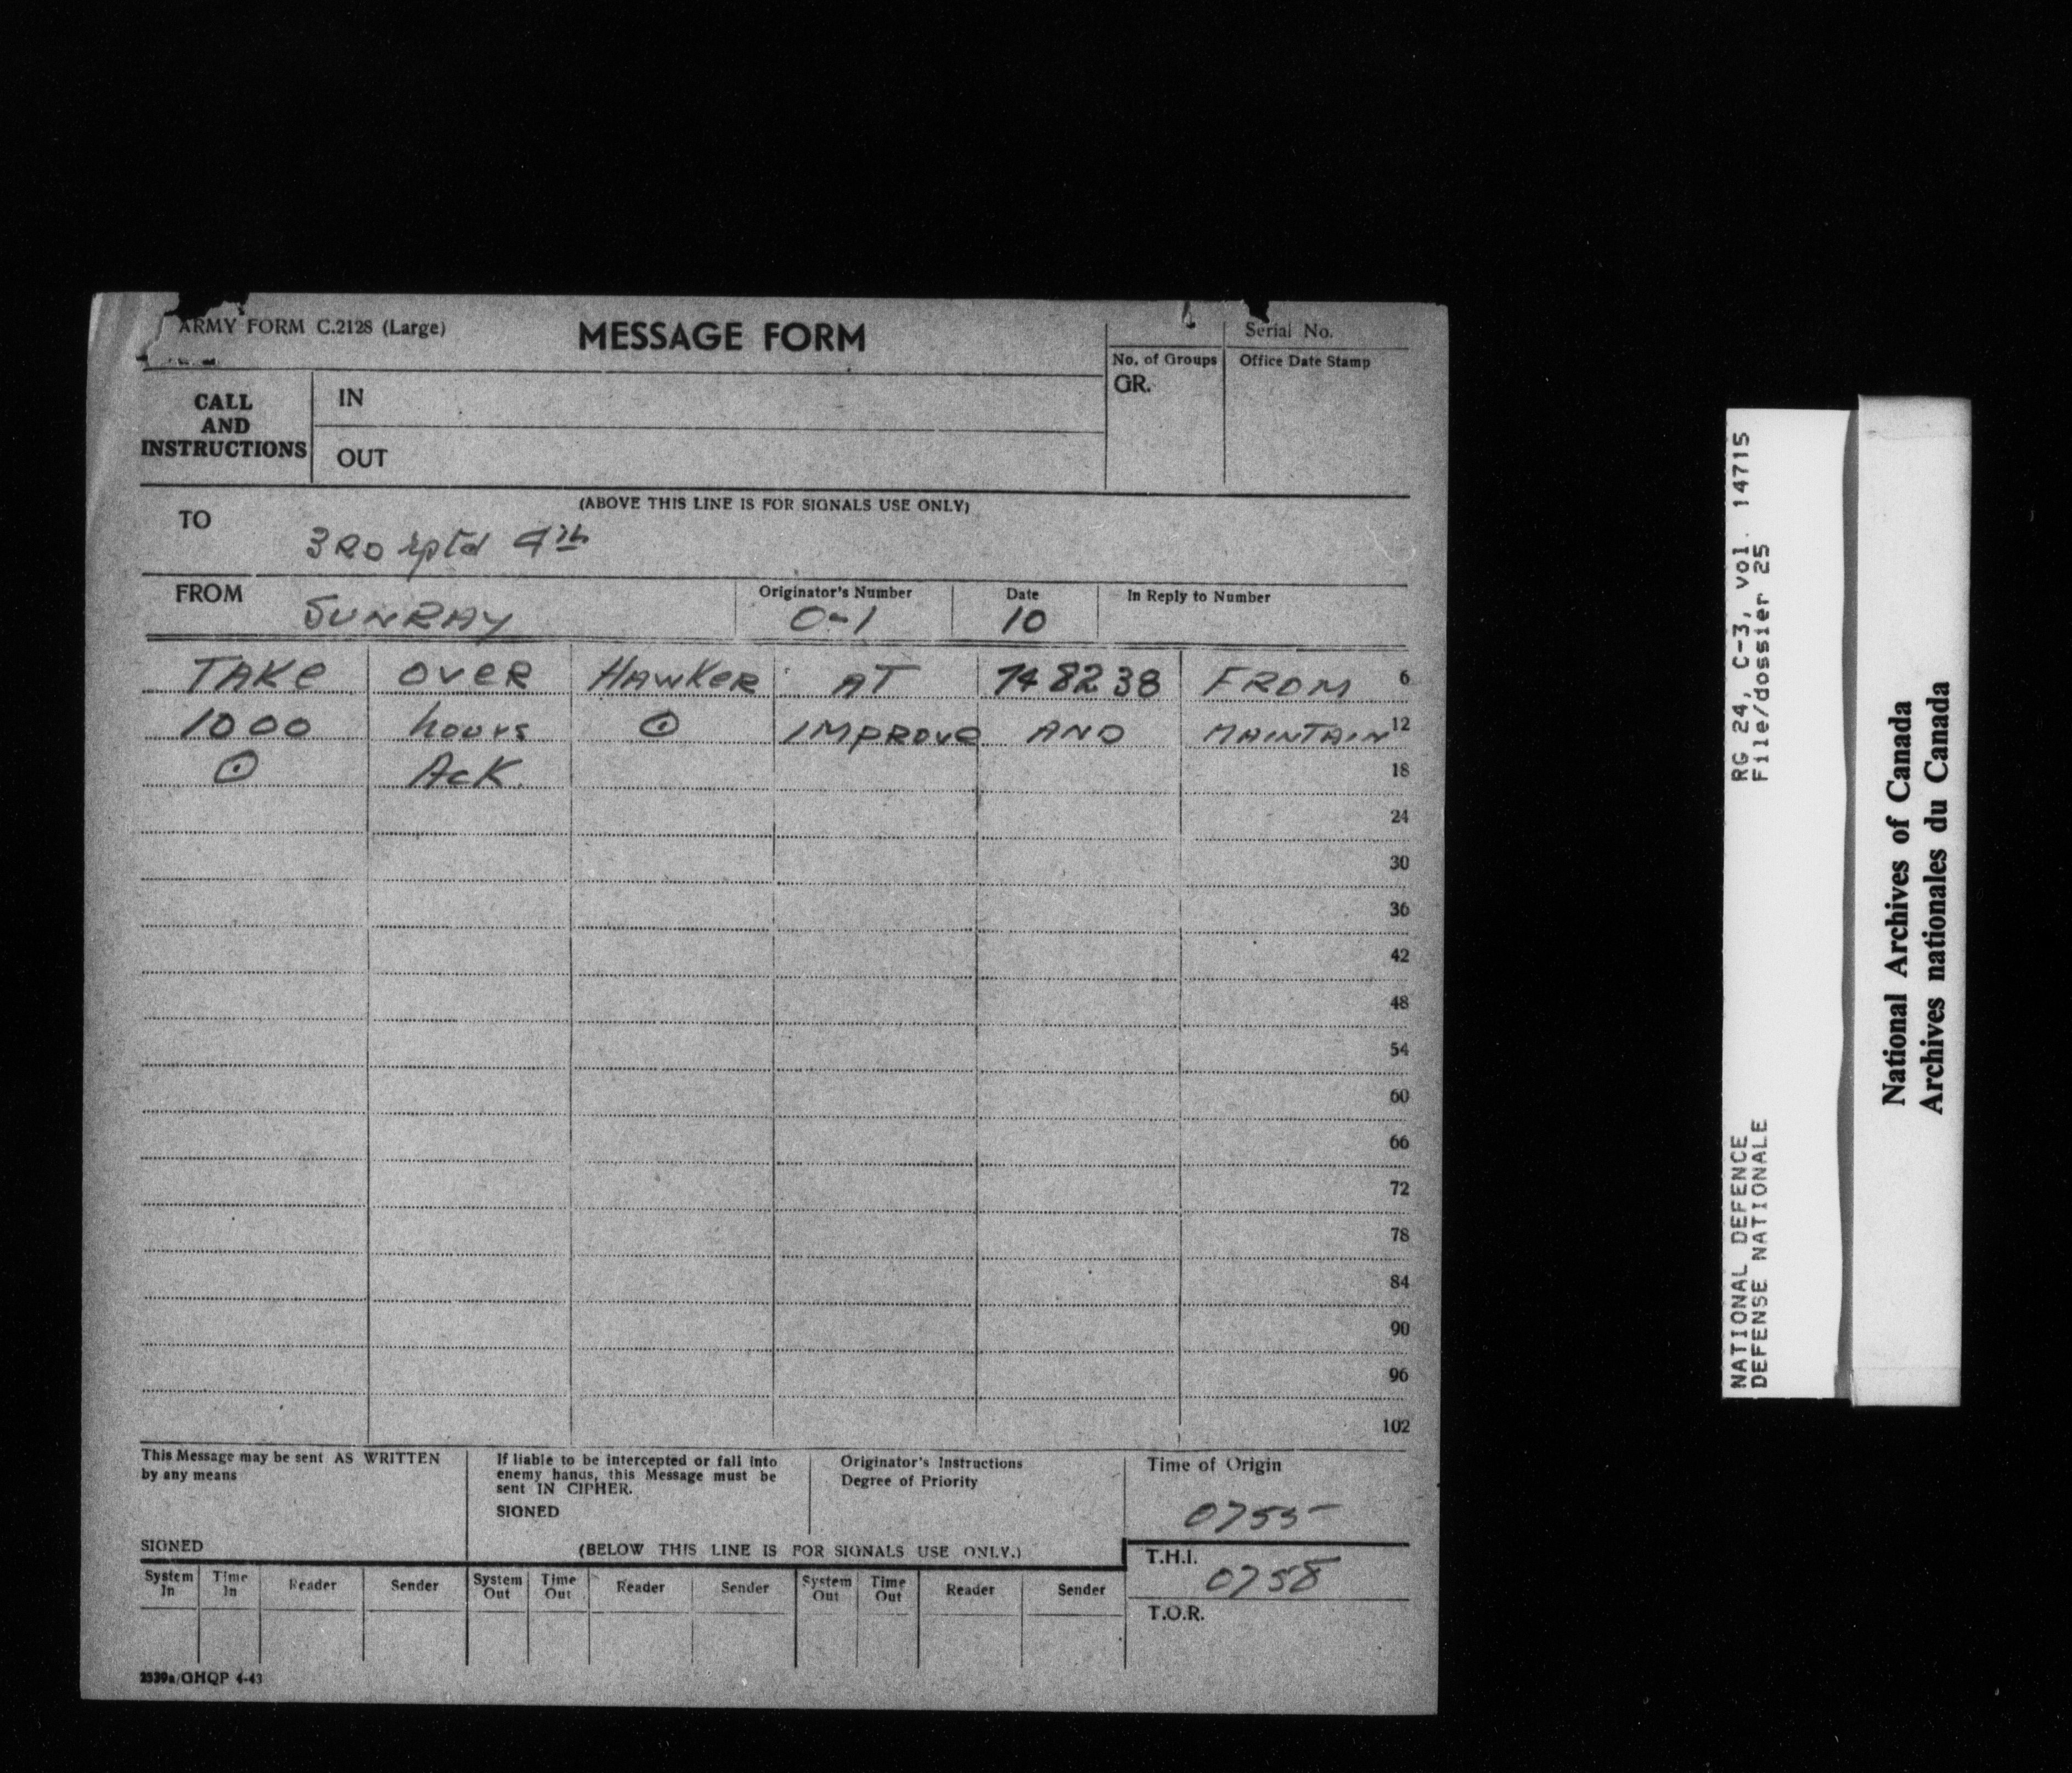 ARMY FORM C.2128 (Large)
MESSAGE FORM
Serial No.
No. of Groups
GR.
Office Date Stamp
CALL
AND
INSTRUCTIONS
IN
OUT
(ABOVE THIS LINE IS FOR SIGNALS USE ONLY)
TO
3RD rptd 9th
FROM
SUNRAY
Originator's Number
O-1
Date
10
In Reply to Number
TAKE OVER HAWKER AT 748238 FROM 6
1000 hours ⊙ IMPROVE AND MAINTAIN 12
⊙ Ack. 18
24
30
36
42
48
54
60
66
72
78
84
90
96
102
This Message may be sent AS WRITTEN
by any means
SIGNED
If liable to be intercepted or fall into
enemy hands, this Message must be
sent IN CIPHER.
SIGNED
Originator's Instructions
Degree of Priority
Time of Origin
0755
(BELOW THIS LINE IS FOR SIGNALS USE ONLY.)
T.H.I.
0758
T.O.R.
System In Time In Reader Sender System Out Time Out Reader Sender System Out Time Out Reader Sender
2539a/GHQP 4-43
NATIONAL DEFENCE RG 24, C-3, vol. 14715
DEFENSE NATIONALE File/dossier 25
National Archives of Canada
Archives nationales du Canada